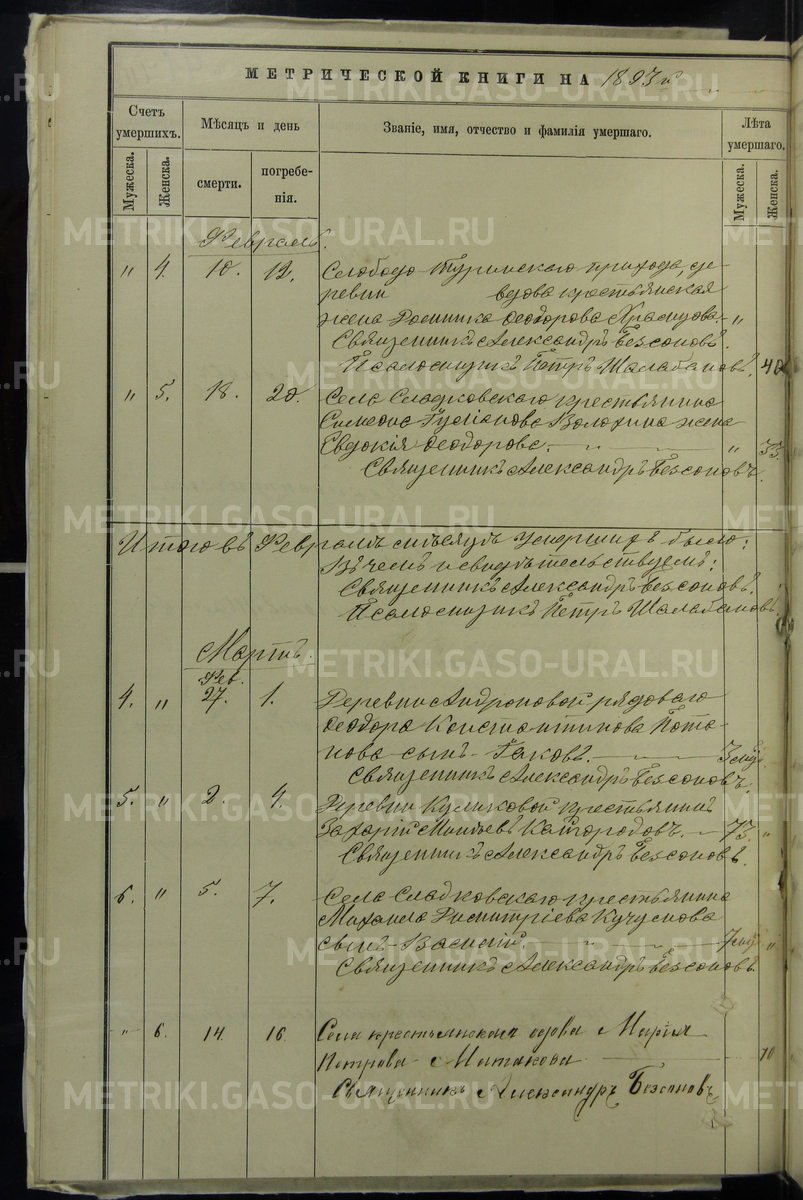 МЕТРИЧЕСКОЙ КНИГИ НА 1893 г.
Счетъ умершихъ.
Мѣсяцъ и день
Званіе, имя, отчество и фамилія умершаго.
Лѣта умершаго.
Мужеска.
Женска.
смерти.
погребенія.
Мужеска.
Женска.
Февраль.
" 4. 10. 12. Слободо-Туринскаго прихода, де-
ревни вдова крестьянская
жена Домника Ѳеодорова "
Священникъ Александръ Безсоновъ.
Псаломщикъ Петръ Шалабановъ. 40
" 5. 18. 20. Села Сладковскаго крестьянина
Симеона жена
Евдокія Ѳеодорова. " 33.
Священникъ Александръ Безсоновъ.
Итого въ Февралѣ мѣсяцѣ умершихъ было:
Въ чемъ и свидѣтельствуемъ:
Священникъ Александръ Безсоновъ.
Псаломщикъ Петръ Шалабановъ.
Мартъ.
Фев.
4. " 27. 1. Деревни Андроновой рядоваго
Ѳеодора Константинова Пота-
пова сынъ Іаковъ.
Священникъ Александръ Безсоновъ.
5. " 2. 4. Деревни Куликовой крестьянинъ
Захарій Кайгородовъ. 73. "
Священникъ Александръ Безсоновъ.
6. " 5. 7. Села Сладковскаго крестьянина
Михаила Димитріева Кучумова
сынъ Василій. "
Священникъ Александръ Безсоновъ.
" 6. 14. 16. Села крестьянская вдова Марія
Петрова 70
Священникъ Александръ Безсоновъ
METRIKI.GASO-URAL.RU